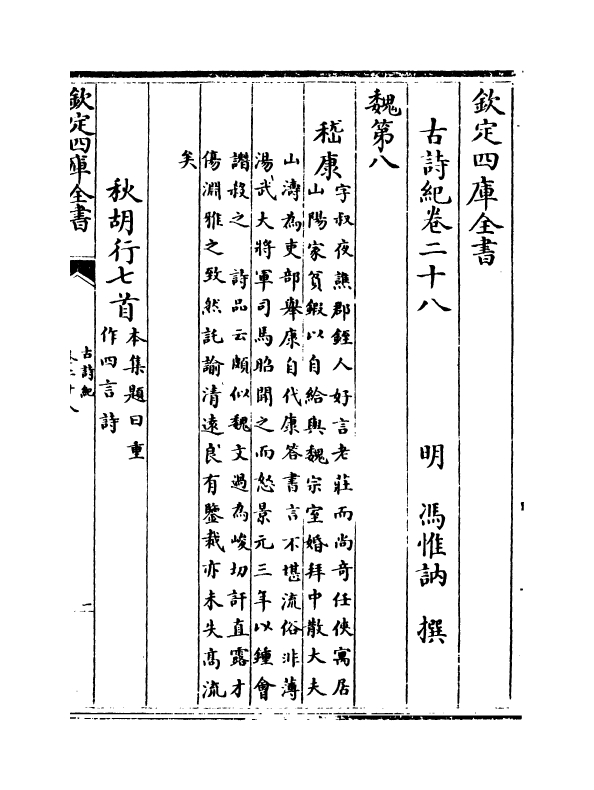 欽定四庫全書
古詩紀卷二十八
明　馮惟訥　撰
魏第八
嵇康
字叔夜譙郡銍人好言老莊而尚奇任俠寓居
山陽家貧鍜以自給與魏宗室婚拜中散大夫
山濤為吏部舉康自代康答書言不堪流俗非薄
湯武大將軍司馬昭聞之而怒景元三年以鍾會
譖殺之　詩品云頗似魏文過為峻切訐直露才
傷淵雅之致然託諭清遠良有鑒裁亦未失髙流
矣
秋胡行七首
本集題曰重
作四言詩
欽定四庫全書
古詩紀
卷二十八
一